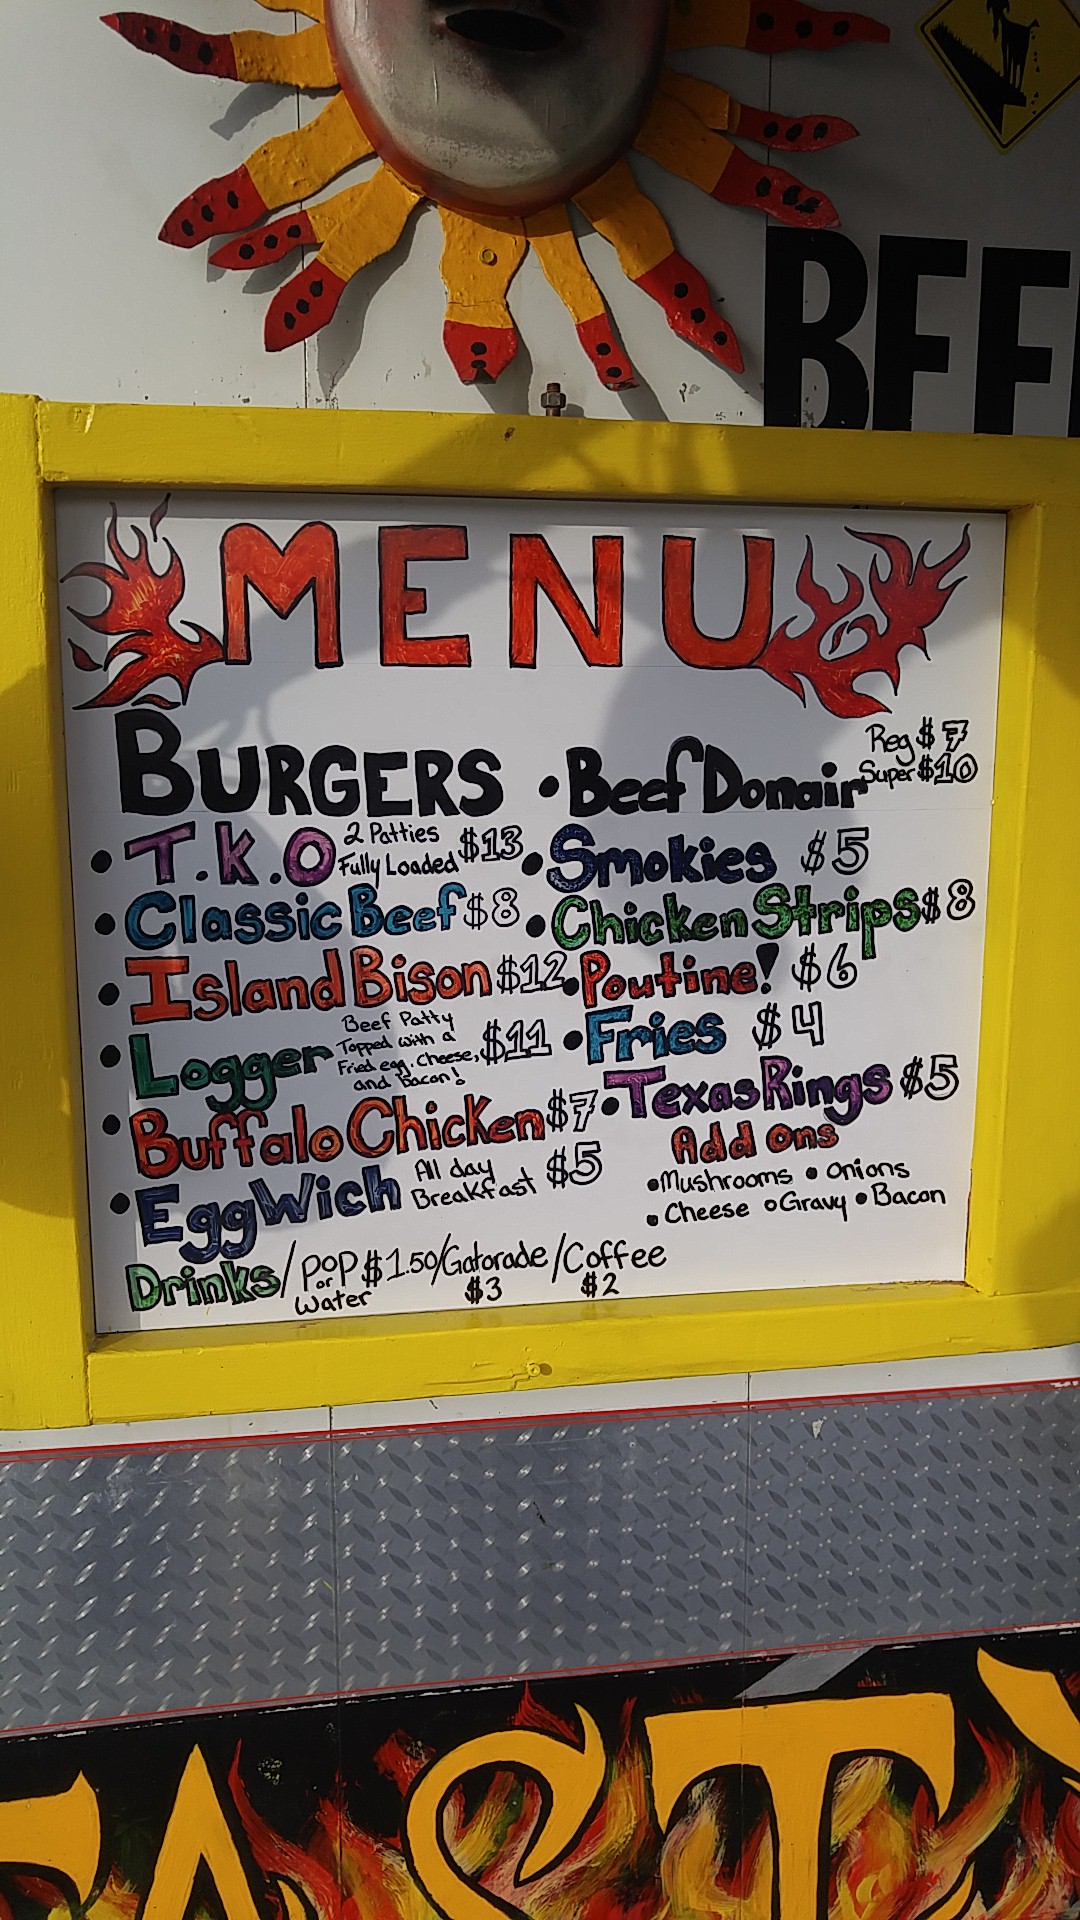 BEE
MENU
BURGERS
• T.K.O 2 Patties Fully Loaded $13
• Classic Beef $8
• Island Bison $12
• Logger Beef Patty Topped with a Fried egg, cheese, and Bacon! $11
• Buffalo Chicken $7
• EggWich All day Breakfast $5
• Beef Donair Reg $7 Super $10
• Smokies $5
• Chicken Strips $8
• Poutine! $6
• Fries $4
• Texas Rings $5
Add ons
• Mushrooms • onions
• Cheese • Gravy • Bacon
Drinks / POP or Water $1.50 / Gatorade $3 / Coffee $2
AST